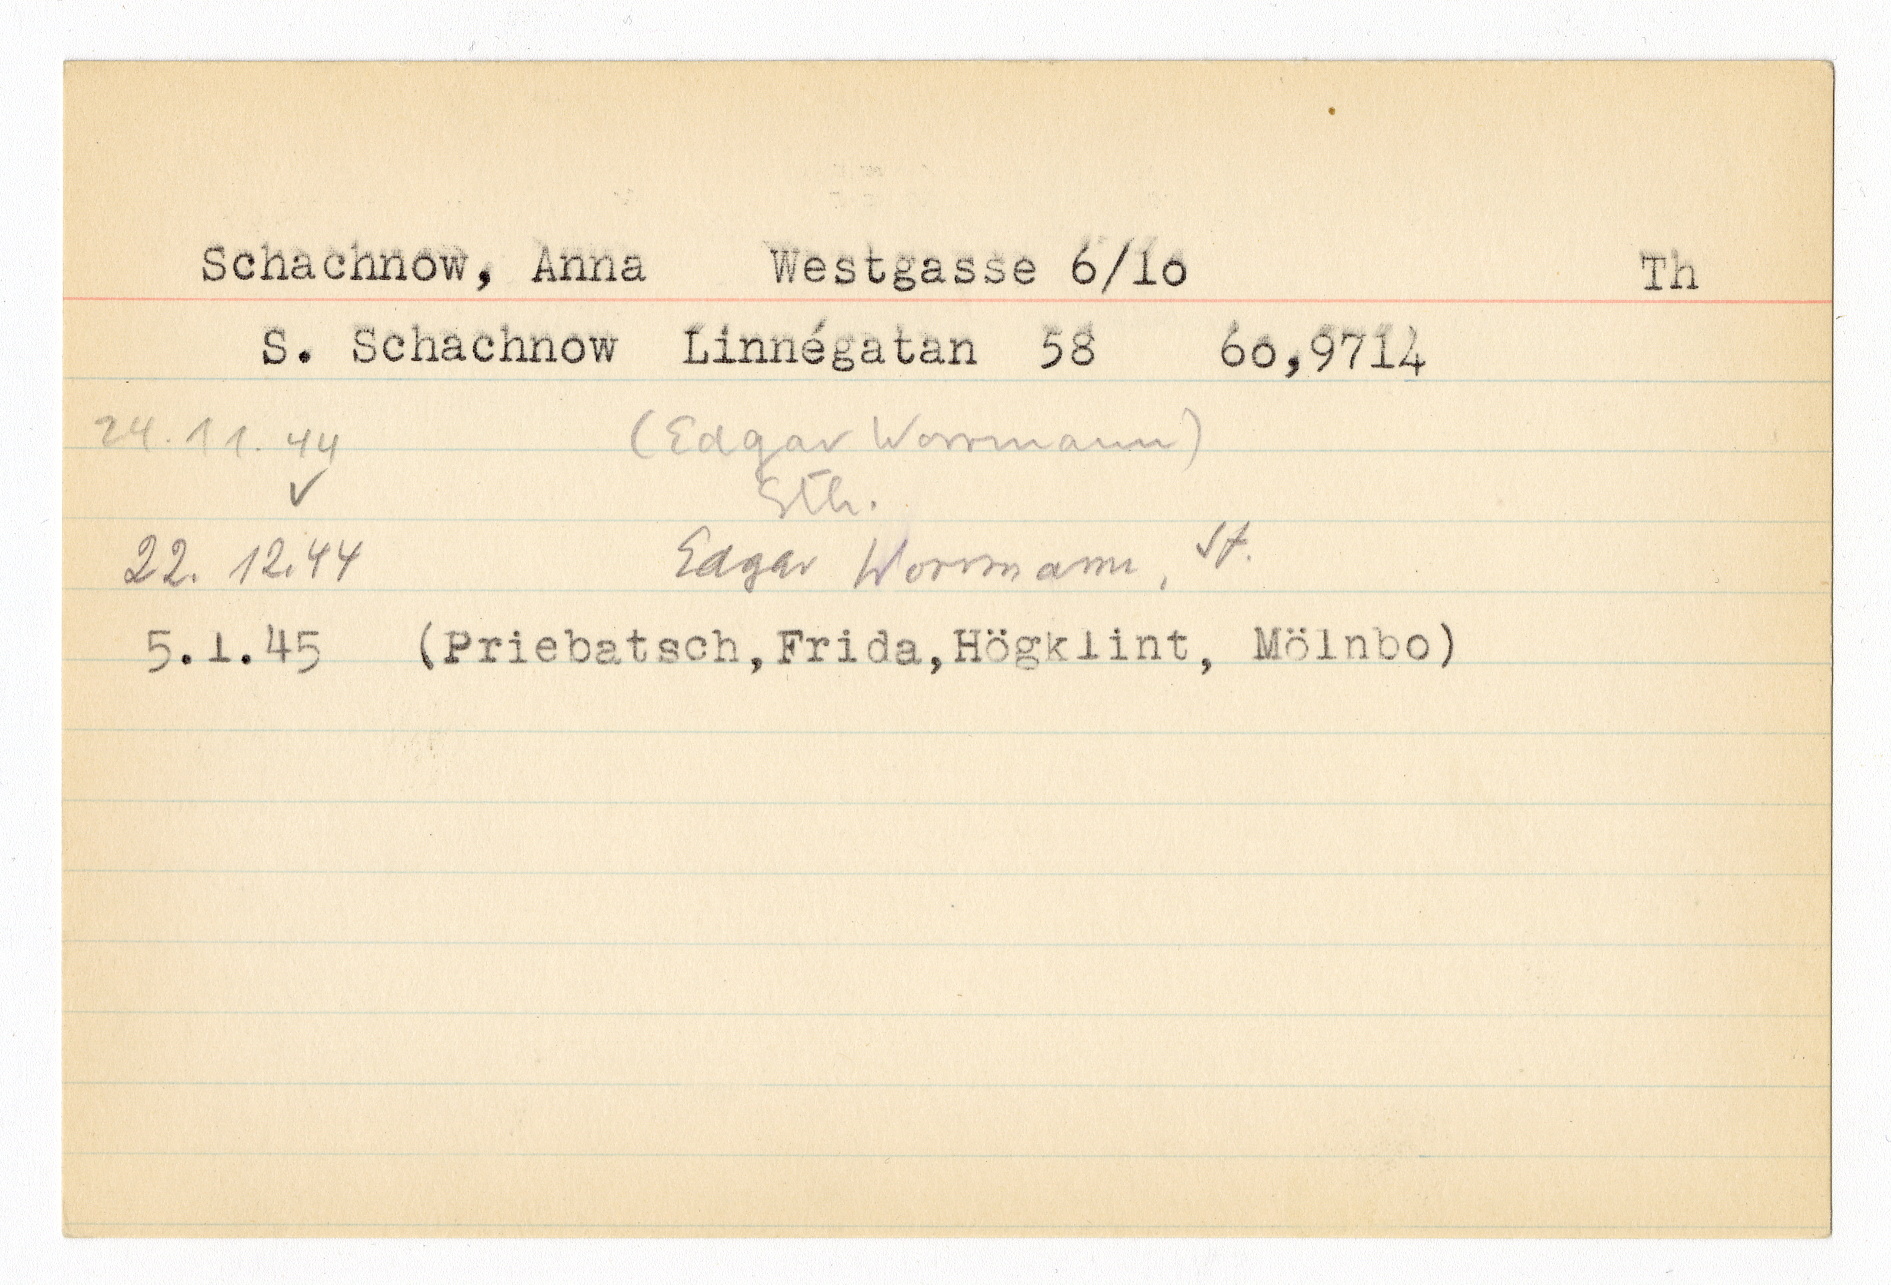 Schachnow, Anna Westgasse 6/10 Th
S. Schachnow Linnégatan 58 60,9714
24.11.44 (Edgar Worrmann)
✓ Sth.
22.12.44 Edgar Worrmann, St.
5.1.45 (Priebatsch,Frida,Högklint, Mölnbo)